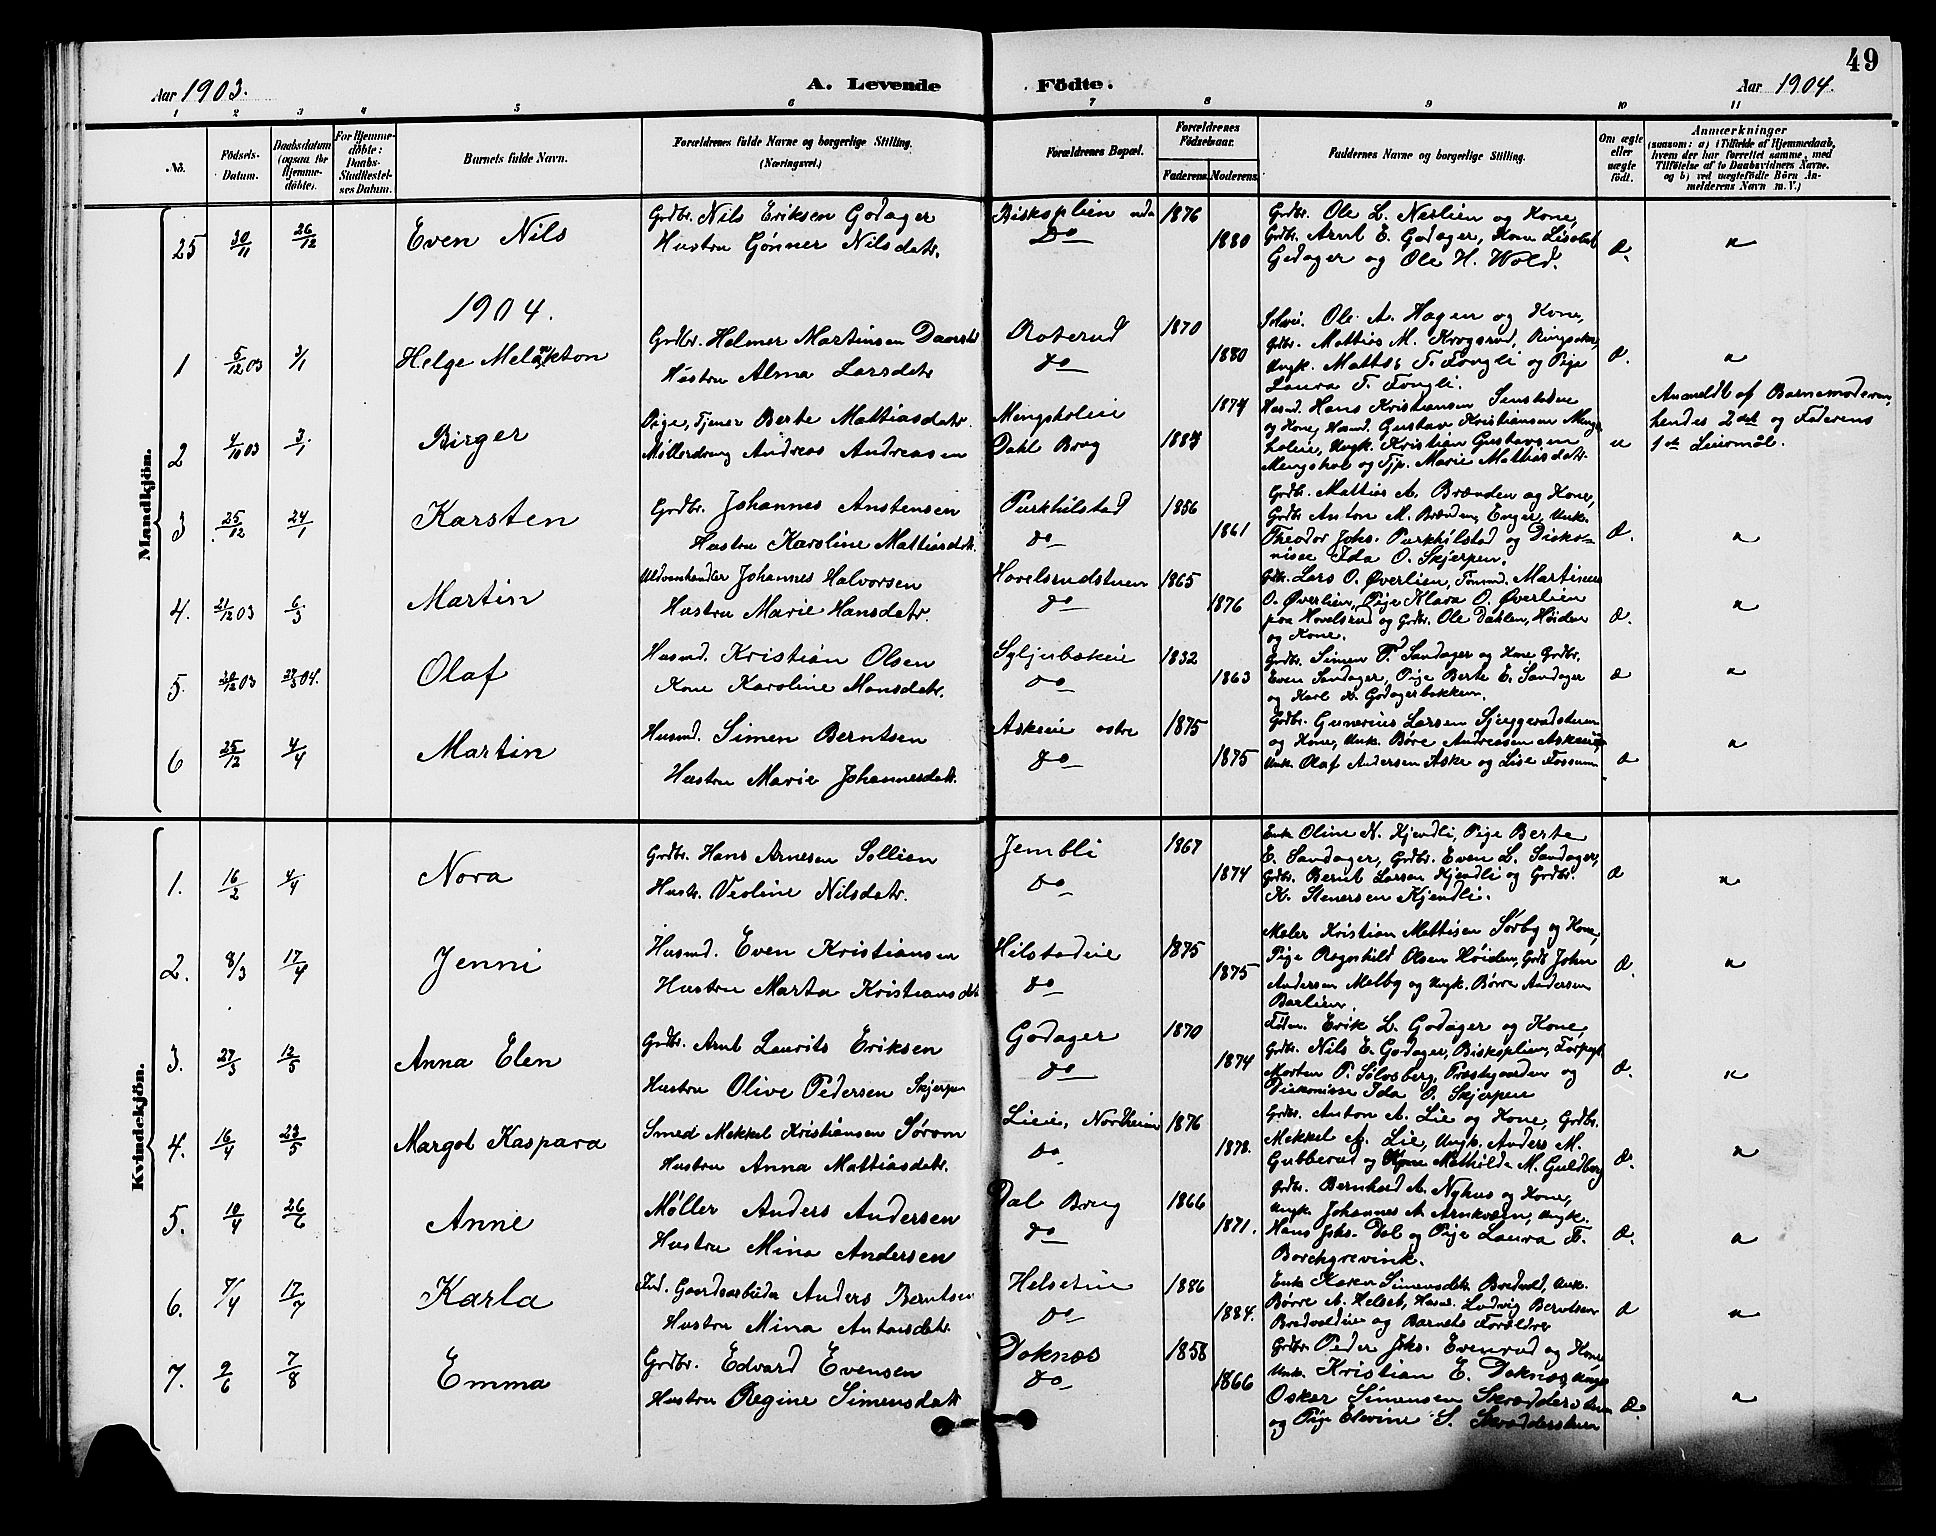 49
Aar 1903.
A. Levende Födte.
Aar 1904.
1 2 3 4 5 6 7 8 9 10 11
No.
Födsels-Datum.
Daabsdatum (ogsaa for Hjemmedöbte).
For Hjemmedöbte: Daabs-Stadfæstelses Datum.
Barnets fulde Navn.
Forældrenes fulde Navne og borgerlige Stilling. (Næringsvei.)
Forældrenes Bopæl.
Forældrenes Födselsaar.
Faderens. Moderens.
Faddernes Navne og borgerlige Stilling.
Om ægte eller uægte födt.
Anmærkninger
(saasom: a) i Tilfælde af Hjemmedaab, hvem der har forrettet samme, med Tilföielse af to Daabsvidners Navne. og b) ved uægtefödte Börn Anmelderens Navn m. V.)
Mandkjön.
25 30/11 26/12 Even Nils
Grdbr. Nils Eriksen Godager
Hustru Gønner Nilsdatr.
Biskoplien
Do
1876
1880
Grdbr. Ole L. Neslien og Kone,
Grdbr. Arnt E. Godager, Kone Lisebet
Godager og Ole H. Wold.
1904.
1 5/12 03 3/1 Helge Melankton
Grdbr. Helmer Martinsen
Hustru Alma Larsdatr
Roterud
do
1870
1880
Ole A. Hagen og Kone,
Grdbr. Mattis M. Krogsrud,
Ungk. Mattis T. Fongli og Pige
Laura T. Fongli.
2 4/10 03 3/1 Birger
Pige, Tjener Berte Mattiasdatr.
Møllerdreng Andreas Andreasen
Mengsholeie
Dahl Brug
1874
1884
Husmd. Hans Kristiansen
og Kone, Husmd. Gustav Kristiansen
Ungk. Kristian Gustavsen
Mengshol og Tjp. Marie Mattisdatr.
u
Anmeldt af Barnemoderen,
hendes 2det og Faderens
1ste Leiermål.
3 25/12 24/1 Karsten
Grdbr. Johannes Anstensen
Hustru Karoline Mattiasdatr.
Purkhilstad
do
1856
1861
Grdbr. Mattias A. Brænden og Kone,
Grdbr Anton M. Brænden, Enger, Unk.
Theodor Johs. Purkhilstad og Diako-
nisse Ida O. Skjerpen.
4. 21/12 03 6/3 Martin
Uldvarehandler Johannes Halvorsen
Hustru Marie Hansdatr.
Hovelsrudstuen
do
1865
1876
Grdb. Lars O. Øverlien, Martines
O. Øverlien, Pige Klara O. Øverlien
paa Hovelsrud og Grdbr. Ole Dahlen, Høiden
og Kone.
5. 03 04. Olaf
Husmd. Kristian Olsen
Kone Karoline Monsdatr.
do
1832
1863
Grdbr. Simen P. Sandager og Kone Grdbr.
Even Sandager, Pige Berte E. Sandager
og Karl Godagerbakken.
6 25/12 4/4 Martin
Husmd. Simen Berntsen
Hustru Marie Johannesdatr.
Askeie østre
do
1875
1875
Grdbr. Gunerius Larsen
og Kone, Unk. Børe Andreassen Askeie
Unk. Olaf Andersen Aske og Lise Fossum
Kvindekjön.
1. 16/2 4/4 Nora
Grdbr. Hans Arnesen Sollien
Hustr. Veoline Nilsdatr.
Jembli
do
1867
1874
Enk Oline N. Kjendli, Pige Berte
E. Sandager, Grdbr. Even L. Sandager,
Grdbr. Bernt Larsen Kjendli og Grdbr.
K. Stenersen Kjendli.
2. 8/3 17/4 Jenni
Husmd. Even Kristiansen
Hustru Marta Kristiansdtr
Hilstadeie
do
1875
1875
Maler Kristian Mattisen Sørby og Kone,
Pige Ragnhild Olsen Høiden, Grdb John
Andersen Melby og Ungk. Børre Andersen
Barlien.
3. 27/3 12/5 Anna Elen
Grdbr. Arnt Laurits Eriksen
Hustru Olive Pedersen Skjerpen
Godager
do
1870
1874
Erik L. Godager og Kone,
Grdbr. Nils E. Godager, Biskoplien,
Morten P. Sølvsberg, Præstegaarden og
Diakonisse Ida O. Skjerpen
4. 16/4 23/5 Margot Kaspara
Smed Mekkel Kristiansen Sørom
Hustru Anna Mattiasdatr.
Lieie, Nordheim
do
1876
1878.
Grdbr. Anton A. Lie og Kone, Grdbr.
Mekkel A. Lie, Ungk. Anders M.
Gubberud og Mathilde M. Guldberg
5. 10/4 26/6 Anne
Møller Anders Andersen
Hustru Mina Andersen
Dal Brug
do
1866
1871.
Grdbr. Bernhard A. Nyhus og Kone,
Ungk. Johannes A. Arnkværn, Ungk.
Hans Johs. Dal og Pige Laura F.
Borchgrevink.
6. 7/4 17/7 Karla
Ind. Gaardsarbeider Anders Berntsen
Hustru Mina Antonsdatr.
Helseteie
do
1886
1884.
Enk. Karen Simensdatr. Bredvold, Unk.
Børre A. Helset, Husm. Ludvig Berntsen
Bredvoldeie og Barnets Forældre
7. 9/6 7/8 Emma
Grdbr. Edvard Evensen
Hustru Regine Simensdatr
Doknæs
do
1858
1866
Grdbr. Peder Johs. Evenrud og Kone
Unk. Kristian E. Doknæs, Ungk
Oskar Simensen Skrædderstuen
og Pige Elevine S. Skrædderstuen